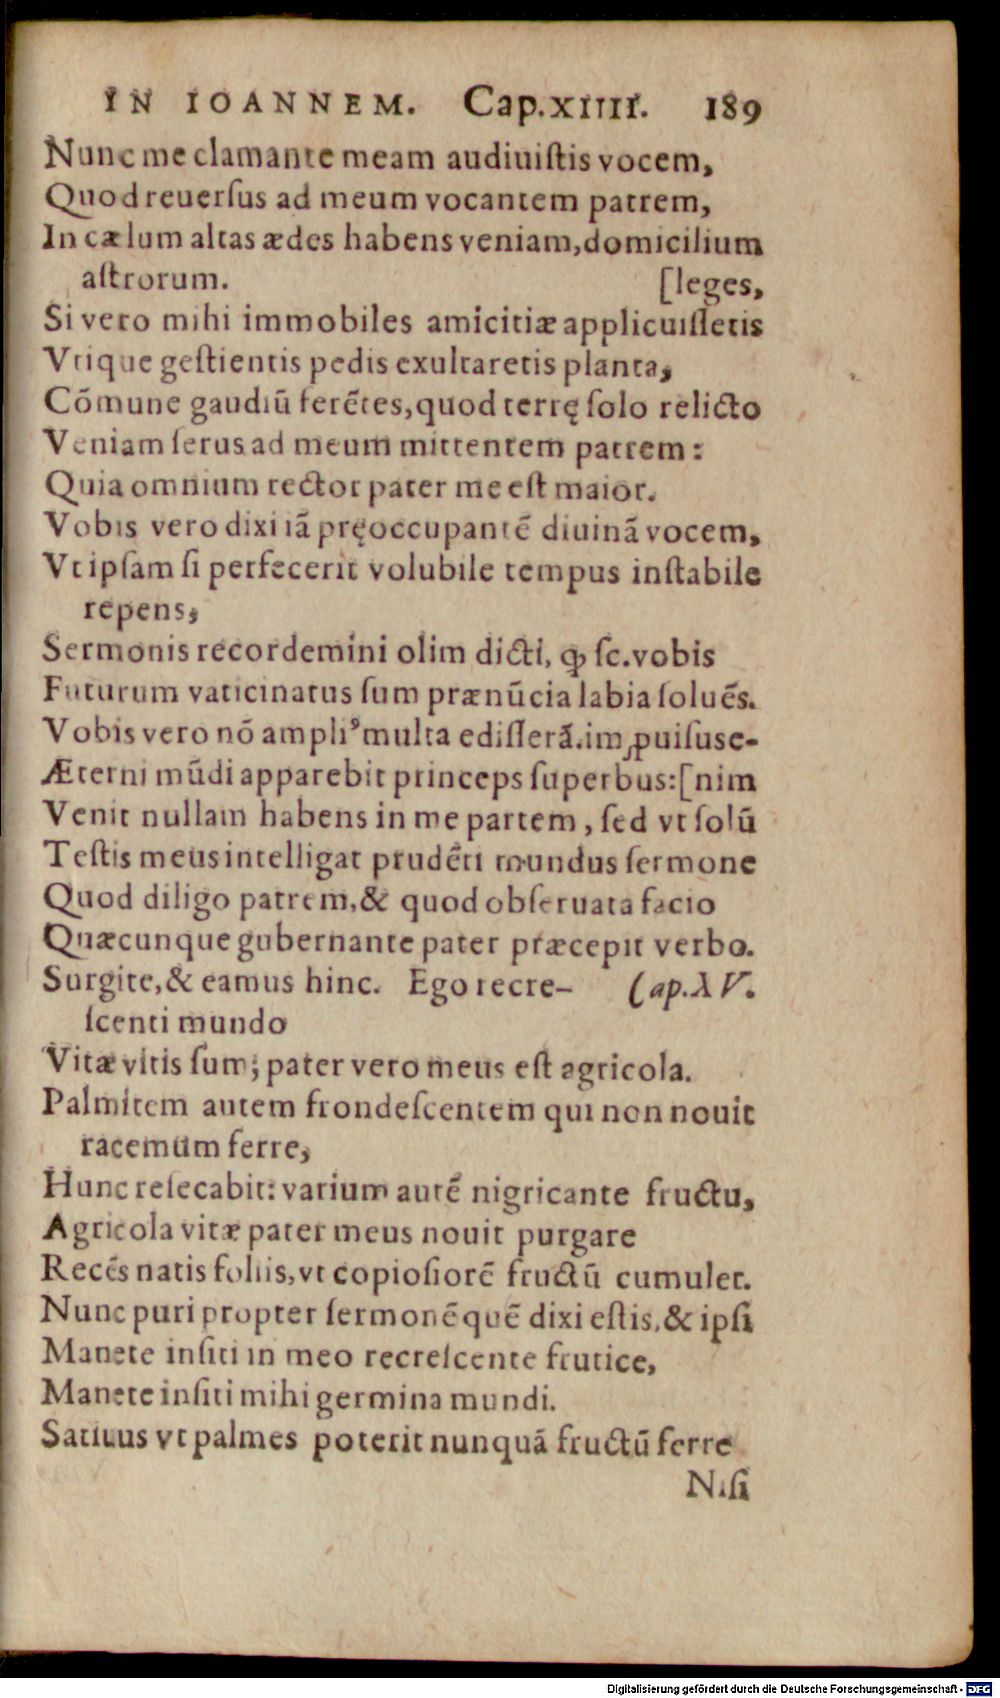 IN IOANNEM. Cap.XIIII. 189
Nunc me clamante meam audiuiſtis vocem,
Quod reuerſus ad meum vocantem patrem,
In cælum altas ædes habens veniam, domicilium
aſtrorum. [leges,
Si vero mihi immobiles amicitiæ applicuiſſetis
Vtique geſtientis pedis exultaretis planta,
Cōmune gaudiū ferētes, quod terrę ſolo relicto
Veniam ſerus ad meum mittentem patrem:
Quia omnium rector pater me eſt maior.
Vobis vero dixi iā pręoccupantē diuinā vocem,
Vt ipſam ſi perfecerit volubile tempus inſtabile
repens,
Sermonis recordemini olim dicti, ꝙ ſc. vobis
Futurum vaticinatus ſum prænūcia labia ſoluēs.
Vobis vero nō ampliꝰ multa ediſſerā. imꝓuiſus e-
Æterni mūdi apparebit princeps ſuperbus: [nim
Venit nullam habens in me partem, ſed vt ſolū
Teſtis meus intelligat prudēti mundus ſermone
Quod diligo patrem, & quod obſeruata facio
Quæcunque gubernante pater præcepit verbo.
Surgite, & eamus hinc. Ego recre- Cap. XV.
ſcenti mundo
Vitæ vitis ſum; pater vero meus eſt agricola.
Palmitem autem frondeſcentem qui non nouit
racemum ferre,
Hunc reſecabit: varium autē nigricante fructu,
Agricola vitæ pater meus nouit purgare
Recēs natis foliis, vt copioſiorē fructū cumulet.
Nunc puri propter ſermonē quē dixi eſtis, & ipſi
Manete inſiti in meo recreſcente frutice,
Manete inſiti mihi germina mundi.
Satiuus vt palmes poterit nunquā fructū ferre
Niſi
Digitalisierung gefördert durch die Deutsche Forschungsgemeinschaft - DFG